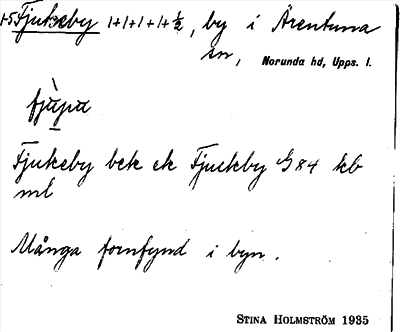 +5 Fjukeby 1+1+1+1+½, by i Ärentuna
sn, Norunda hd, Upps. l.
Fjukeby bek ek Fjuckby G 84 kb
ml
Många fornfynd i byn.
STINA HOLMSTRÖM 1935